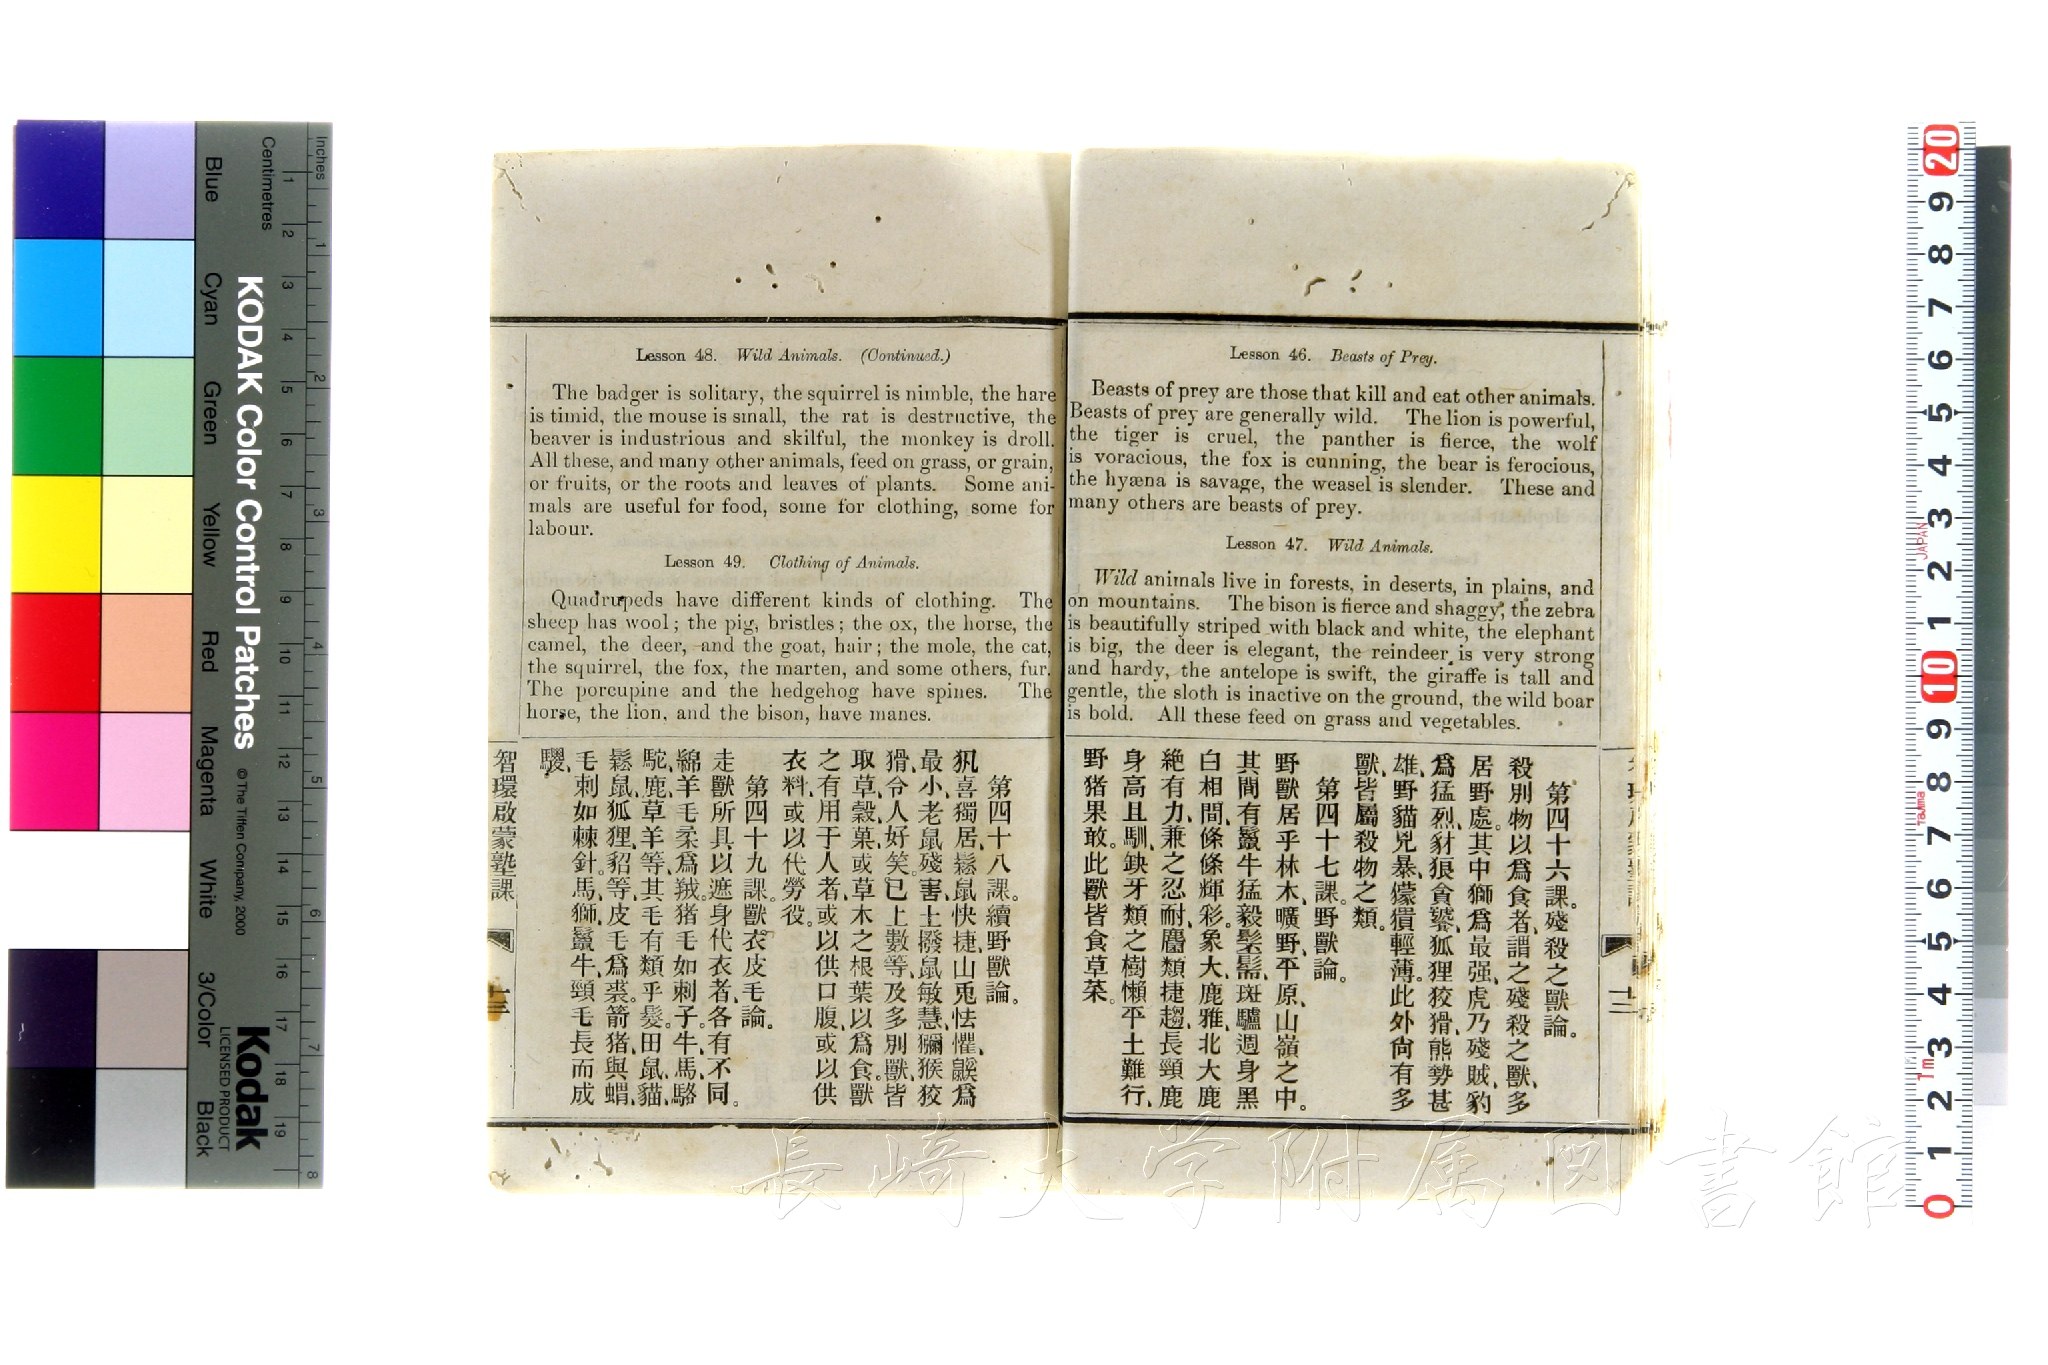 Lesson 46. Beasts of Prey.
Beasts of prey are those that kill and eat other animals.
Beasts of prey are generally wild. The lion is powerful,
the tiger is cruel, the panther is fierce, the wolf
is voracious, the fox is cunning, the bear is ferocious,
the hyæna is savage, the weasel is slender. These and
many others are beasts of prey.
Lesson 47. Wild Animals.
Wild animals live in forests, in deserts, in plains, and
on mountains. The bison is fierce and shaggy, the zebra
is beautifully striped with black and white, the elephant
is big, the deer is elegant, the reindeer is very strong
and hardy, the antelope is swift, the giraffe is tall and
gentle, the sloth is inactive on the ground, the wild boar
is bold. All these feed on grass and vegetables.
第四十六課。殘殺之獸論。
殺別物以爲食者、謂之殘殺之獸、多
居野處。其中獅爲最强、虎乃殘賊、豹
爲猛烈、豺狼貪饕、狐狸狡猾、熊勢甚
雄、野貓兇暴、獴獚輕薄。此外尙有多
獸、皆屬殺物之類。
第四十七課。野獸論。
野獸居乎林木、曠野、平原、山嶺之中。
其間有鬣牛猛毅鬃鬅、斑驢週身黑
白相間、條條輝彩。象大、鹿雅、北大鹿
絶有力、兼之忍耐、麢類捷趨、長頸鹿
身高且馴、缺牙類之樹懶平土難行、
野猪果敢。此獸皆食草菜。
Lesson 48. Wild Animals. (Continued.)
The badger is solitary, the squirrel is nimble, the hare
is timid, the mouse is small, the rat is destructive, the
beaver is industrious and skilful, the monkey is droll.
All these, and many other animals, feed on grass, or grain,
or fruits, or the roots and leaves of plants. Some ani-
mals are useful for food, some for clothing, some for
labour.
Lesson 49. Clothing of Animals.
Quadrupeds have different kinds of clothing. The
sheep has wool; the pig, bristles; the ox, the horse, the
camel, the deer, and the goat, hair; the mole, the cat,
the squirrel, the fox, the marten, and some others, fur.
The porcupine and the hedgehog have spines. The
horse, the lion, and the bison, have manes.
第四十八課。續野獸論。
犼喜獨居、鬆鼠快捷、山兎怯懼、鼷爲
最小、老鼠殘害、土撥鼠敏慧、獼猴狡
猾、令人好笑。已上數等、及多別獸、皆
取草、穀、菓、或草木之根葉以爲食。獸
之有用于人者、或以供口腹、或以供
衣料、或以代勞役。
第四十九課。獸衣皮毛論。
走獸所具以遮身代衣者、各有不同。
綿羊毛柔爲羢。猪毛如刺子。牛、馬、駱
駝、鹿、草羊等、其毛有類乎髮。田鼠、貓、
鬆鼠、狐狸、貂等、皮毛爲裘。箭猪、與蝟、
毛刺如棘針。馬、獅、鬣牛、頸毛長而成
騣。
智環啟蒙塾課
十三
KODAK Color Control Patches
© The Tiffen Company, 2000
Kodak
LICENSED PRODUCT
Inches
Centimetres
Blue
Cyan
Green
Yellow
Red
Magenta
White
3/Color
Black
1 2 3 4 5 6 7 8 9 10 11 12 13 14 15 16 17 18 19
1 2 3 4 5 6 7 8
20 9 8 7 6 5 4 3 2 1 10 9 8 7 6 5 4 3 2 1 0
JAPAN
TAJIMA
1m
長崎大学附属図書館